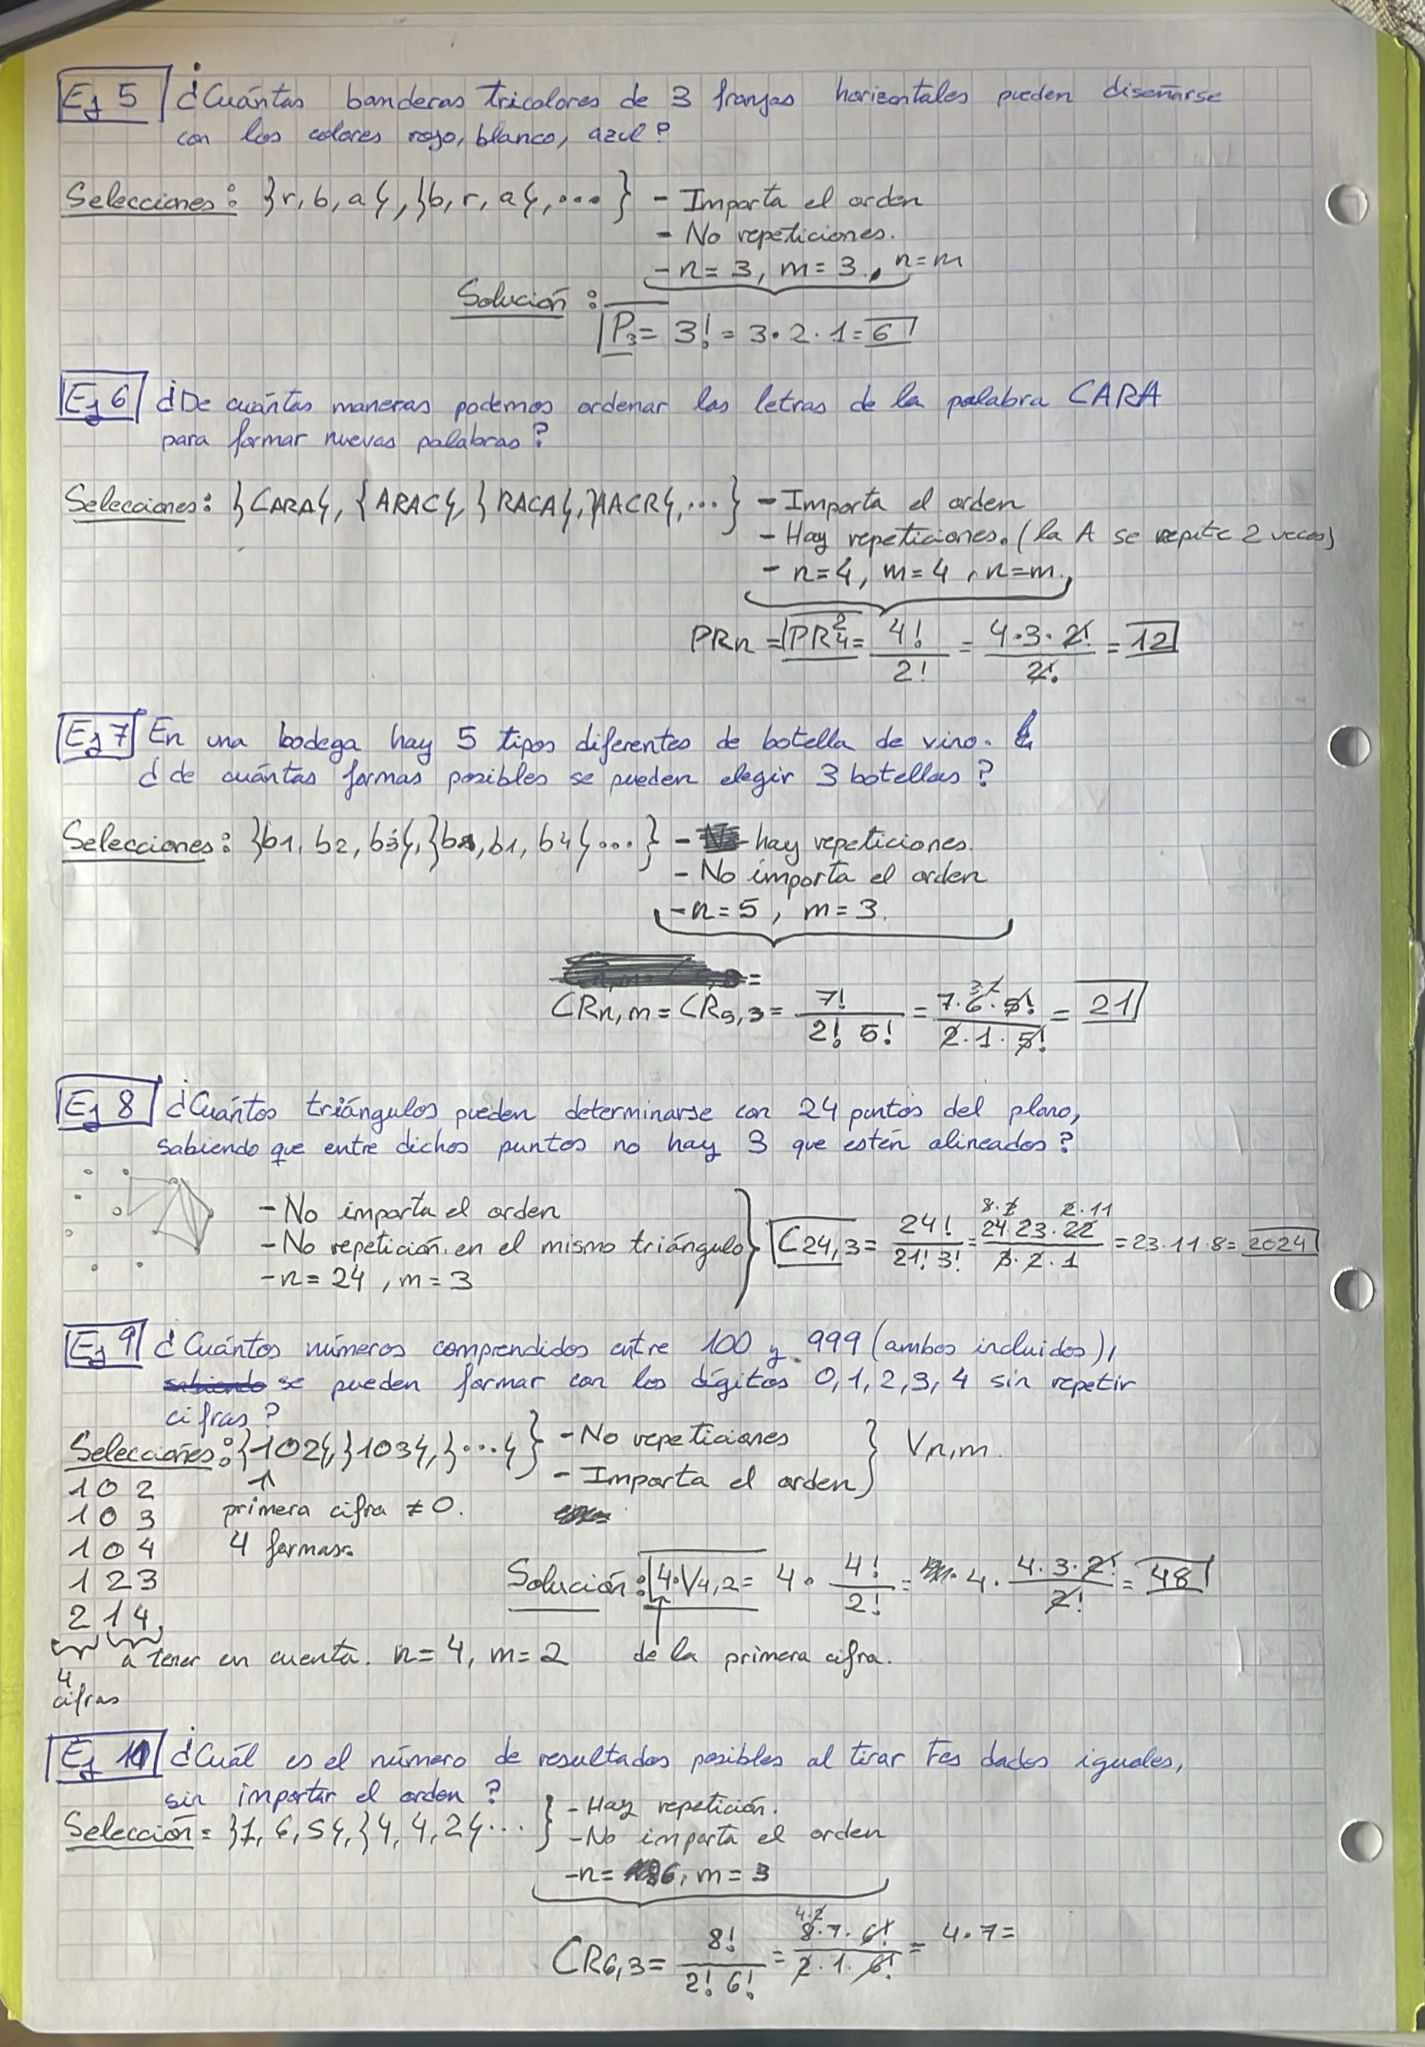 Ej 5 ¿Cuántas banderas tricolores de 3 franjas horizontales pueden diseñarse
con los colores rojo, blanco, azul?
Selecciones: {r, b, a}, {b, r, a}, ... } - Importa el orden
- No repeticiones.
- n = 3, m = 3, n = m
Solución:
P₃ = 3! = 3·2·1 = 6
Ej 6 ¿De cuántas maneras podemos ordenar las letras de la palabra CARA
para formar nuevas palabras?
Selecciones: {CARA}, {ARAC}, {RACA}, {AACR}, ... } - Importa el orden
- Hay repeticiones. (la A se repite 2 veces)
- n = 4, m = 4, n = m.
PRn = PR₄² = 4!/2! = 4·3·2!/2! = 12
Ej 7 En una bodega hay 5 tipos diferentes de botella de vino.
¿de cuántas formas posibles se pueden elegir 3 botellas?
Selecciones: {b1, b2, b3}, {b2, b1, b4} ... } - hay repeticiones.
- No importa el orden
- n = 5, m = 3.
CRn,m = CR5,3 = 7!/2! 5! = 7·6·5!/2·1·5! = 21
Ej 8 ¿Cuántos triángulos pueden determinarse con 24 puntos del plano,
sabiendo que entre dichos puntos no hay 3 que estén alineados?
- No importa el orden
- No repetición en el mismo triángulo
- n = 24, m = 3
C24,3 = 24!/21! 3! = 24·23·22/3·2·1 = 23·11·8 = 2024
Ej 9 ¿Cuántos números comprendidos entre 100 y 999 (ambos incluidos),
sabiendo se pueden formar con los dígitos 0, 1, 2, 3, 4 sin repetir
cifras?
Selecciones: {102}, {103}, {...} } - No repeticiones } Vn,m.
- Importa el orden
1 0 2
1 0 3 primera cifra ≠ 0.
1 0 4 4 formas.
1 2 3
2 1 4
Solución: 4·V4,2 = 4·4!/2! = 4·4·3·2!/2! = 48
4 cifras
a tener en cuenta. n = 4, m = 2 de la primera cifra.
Ej 10 ¿Cuál es el número de resultados posibles al tirar tres dados iguales,
sin importar el orden?
Selección = {1, 6, 5}, {4, 4, 2} ... } - Hay repetición.
- No importa el orden
- n = 6, m = 3
CR6,3 = 8!/2! 6! = 8·7·6!/2·1·6! = 4·7 =